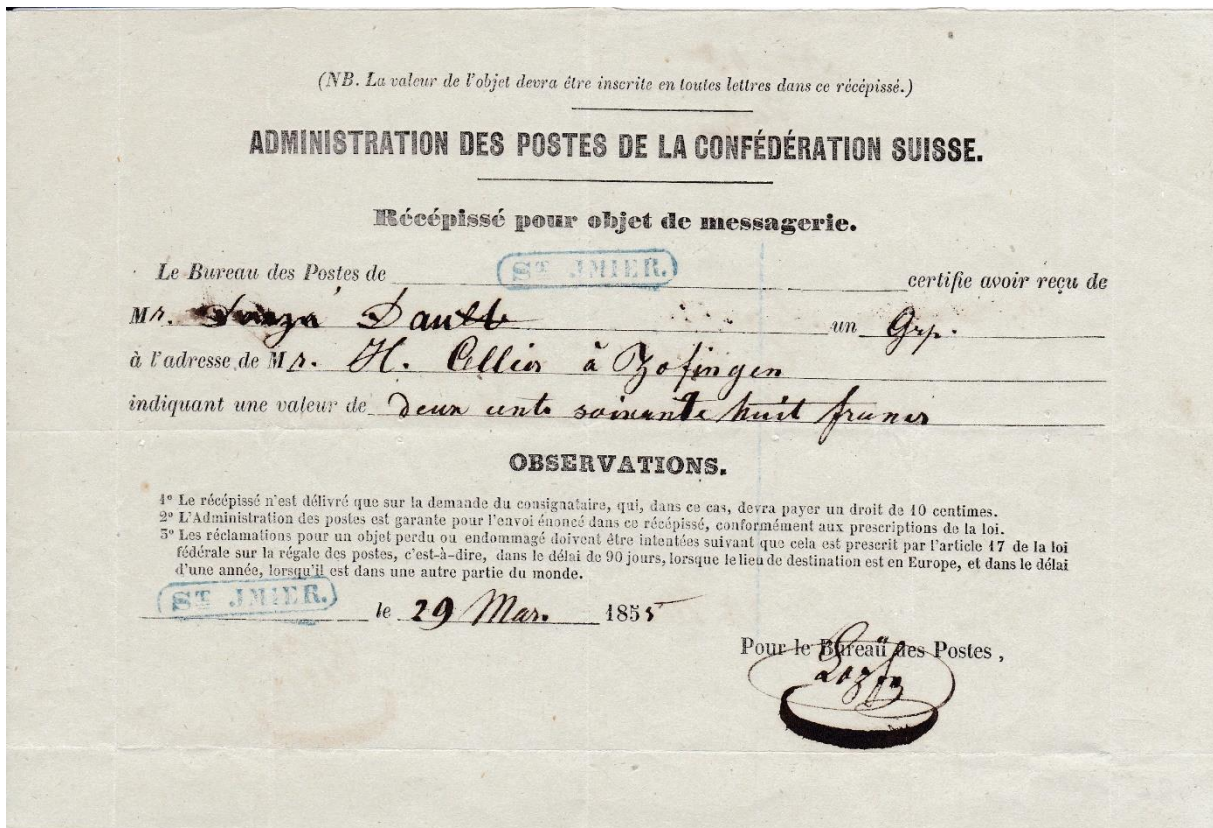 (NB. La valeur de l'objet devra être inscrite en toutes lettres dans ce récépissé.)
ADMINISTRATION DES POSTES DE LA CONFÉDÉRATION SUISSE.
Récépissé pour objet de messagerie.
Le Bureau des Postes de ST. IMIER. certifie avoir reçu de
Mr. un Grp.
à l'adresse de Mr. H. à Zofingen
indiquant une valeur de deux cents soixante huit francs
OBSERVATIONS.
1º Le récépissé n'est délivré que sur la demande du consignataire, qui, dans ce cas, devra payer un droit de 10 centimes.
2º L'Administration des postes est garante pour l'envoi énoncé dans ce récépissé, conformément aux prescriptions de la loi.
3º Les réclamations pour un objet perdu ou endommagé doivent être intentées suivant que cela est prescrit par l'article 17 de la loi
fédérale sur la régale des postes, c'est-à-dire, dans le délai de 90 jours, lorsque le lieu de destination est en Europe, et dans le délai
d'une année, lorsqu'il est dans une autre partie du monde.
ST. IMIER. le 29 Mar. 1855
Pour le Bureau des Postes,